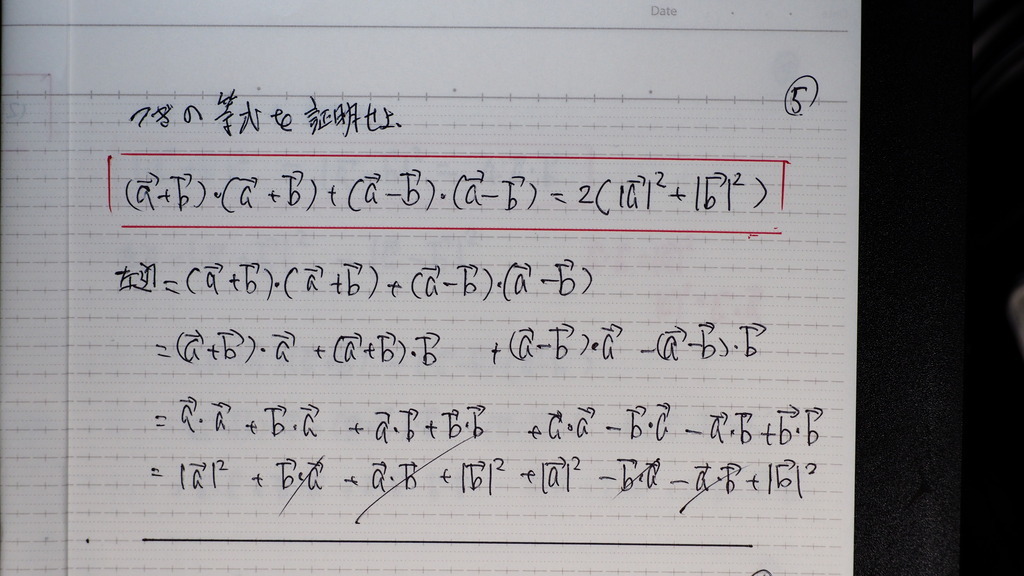 Date
⑤
つぎの等式を証明せよ.
(a⃗+b⃗)·(a⃗+b⃗)+(a⃗-b⃗)·(a⃗-b⃗)=2(|a⃗|²+|b⃗|²)
左辺=(a⃗+b⃗)·(a⃗+b⃗)+(a⃗-b⃗)·(a⃗-b⃗)
=(a⃗+b⃗)·a⃗+(a⃗+b⃗)·b⃗ +(a⃗-b⃗)·a⃗ -(a⃗-b⃗)·b⃗
=a⃗·a⃗+b⃗·a⃗ +a⃗·b⃗+b⃗·b⃗ +a⃗·a⃗-b⃗·a⃗-a⃗·b⃗+b⃗·b⃗
=|a⃗|²+b⃗·a⃗+a⃗·b⃗+|b⃗|²+|a⃗|²-b⃗·a⃗-a⃗·b⃗+|b⃗|²